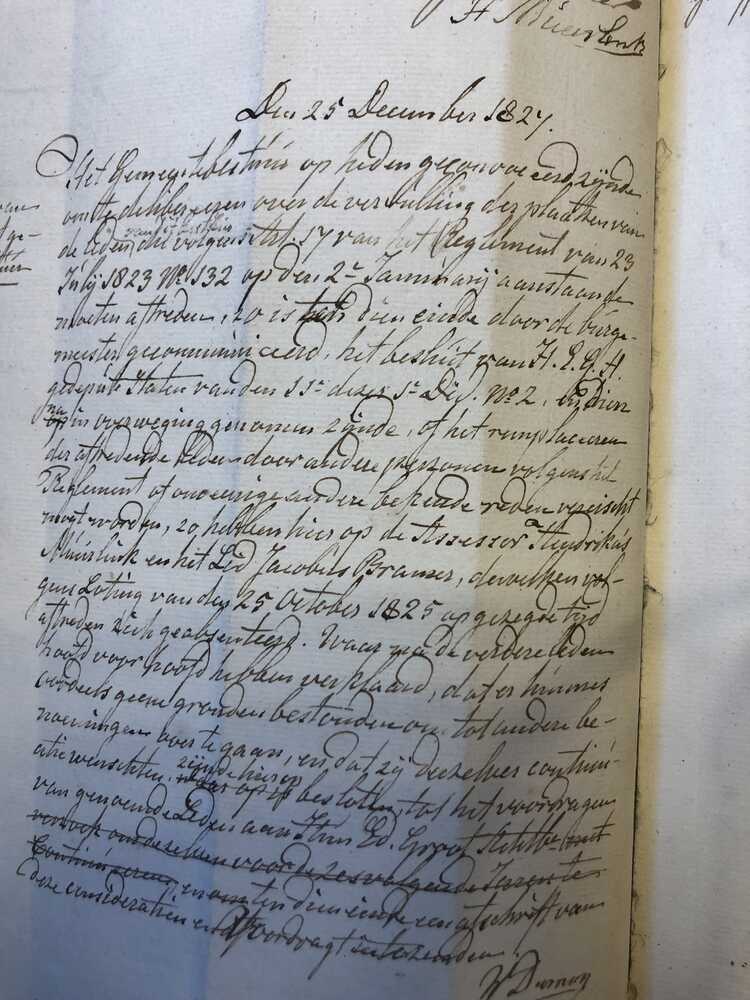 H Muurlink
Den 25 December 1827.
Het Gemeentebestuur op heden geconvoceerd zijnde
om te delibereren over de vervulling der plaatsen van
de leden, die volgens Art. 17 van het Reglement van 23
July 1823 No 132 op den 2e January aanstaande
moeten aftreden, zo is ten dien einde door de burge-
meester gecommuniceerd, het besluit van H. E. G. H.
gedeputeerde Staten van den 11e dezer 1e Div. No 2, en dien
na in overweging genomen zijnde, of het remplaceren
der aftredende leden door andere personen volgens het
Reglement of om eenige andere bekende reden vereischt
mogt worden, zo hebben hier op de Assessor Hendrikus
Muurlink en het Lid Jacobus Bramer, dewelken vol-
gens Loting van den 25 October 1825 op gezegde tijd
aftreden zich geabsenteerd. Waar na de verdere leden
hoofd voor hoofd hebben verklaard, dat er hunnes
oordeels geene gronden bestonden om tot andere be-
noemingen over te gaan, en dat zij dezelver continu-
atie wenschten, zijnde hier op besloten, tot het voordragen
van genoemde Leden aan Hun Ed. Groot Achtb. met
verzoek om dezelven voor de zes volgende Jaren te
Continueren, en om ten dien einde een afschrift van
deze consideratien en voordragt intezenden.